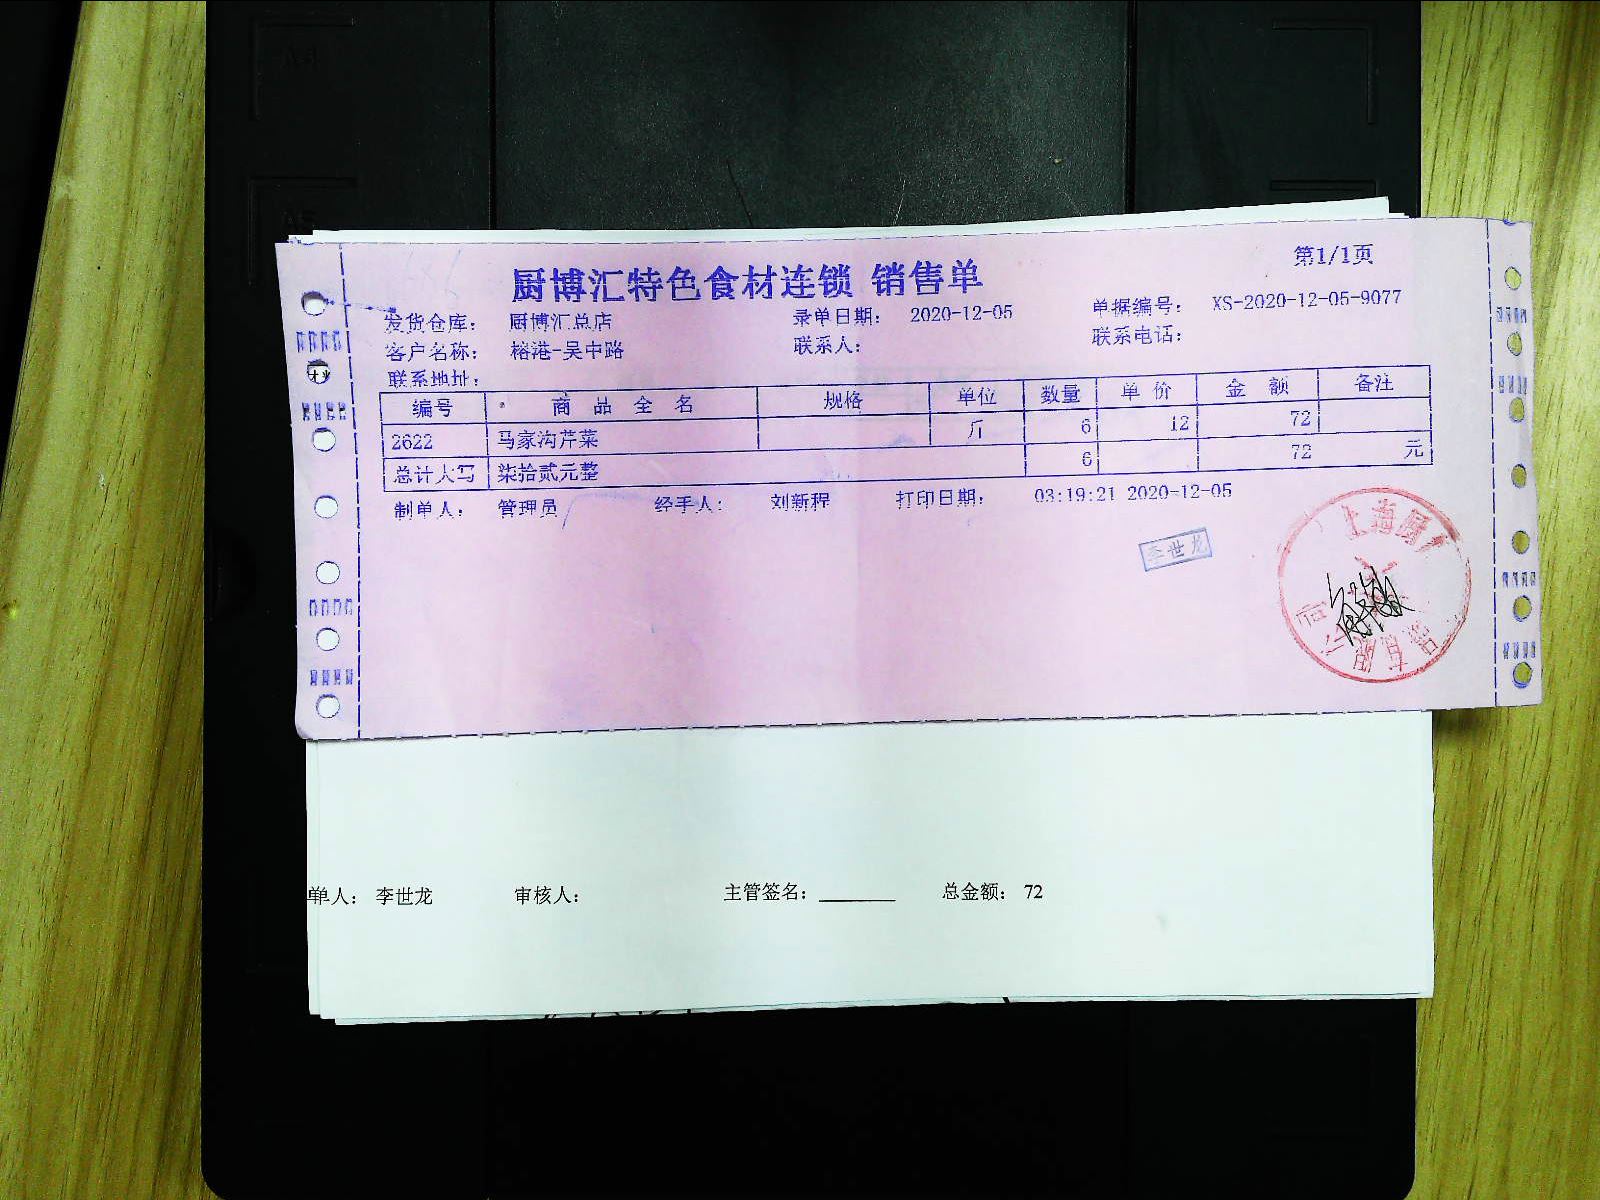 第1/1页
厨博汇特色食材连锁 销售单
发货仓库： 厨博汇总店 录单日期： 2020-12-05 单据编号： XS-2020-12-05-9077
客户名称： 榕港-吴中路 联系人： 联系电话：
联系地址：
编号 商品全名 规格 单位 数量 单价 金额 备注
2622 马家沟芹菜 斤 6 12 72
总计大写 柒拾贰元整 6 72 元
制单人： 管理员 经手人： 刘新程 打印日期： 03:19:21 2020-12-05
李世龙
上海厨
有限公
单人： 李世龙 审核人： 主管签名：______ 总金额： 72